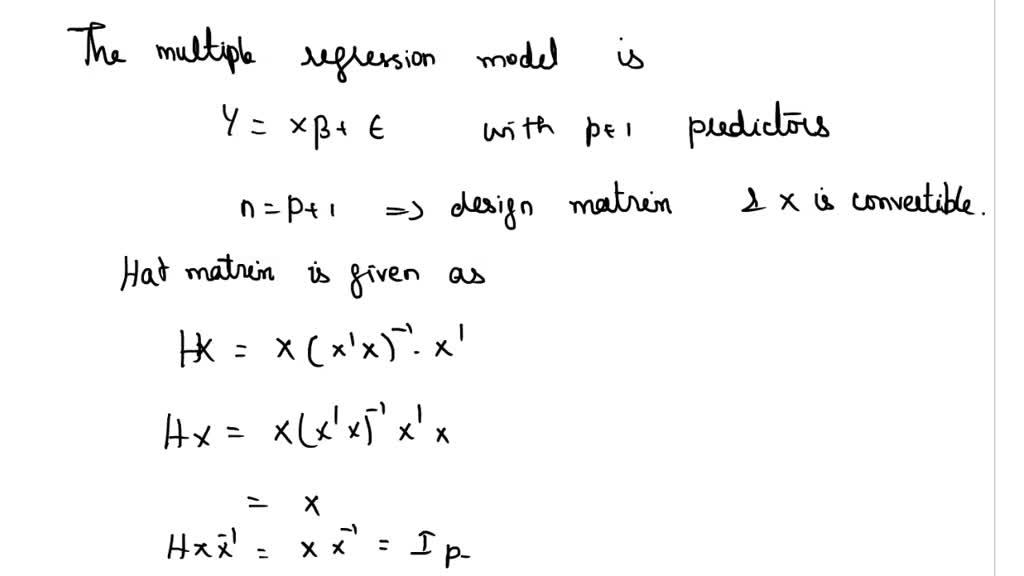 The multiple regression model is
Y = xβ + ϵ with p+1 predictors
n = p+1 => design matrix & x is convertible.
Hat matrix is given as
Hx = x(x'x)⁻¹. x'
Hx = x(x'x)⁻¹ x' x
= x
Hx x⁻¹ = x x⁻¹ = I p-